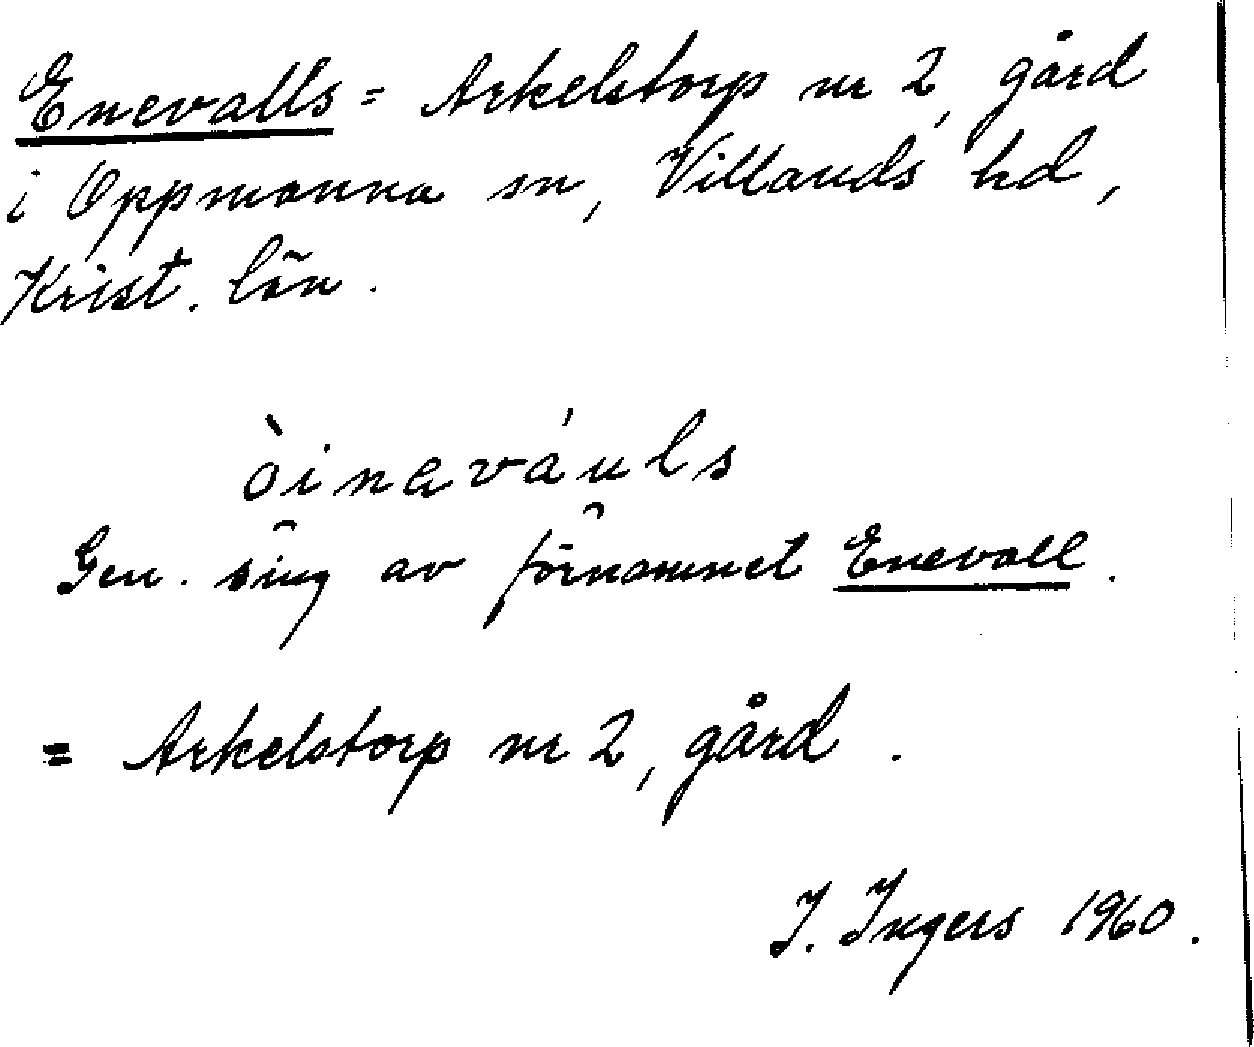 Enevalls = Arkelstorp nr 2, gård
i Oppmanna sn, Villands hd,
Krist. län.
òinaváuls
Gen. sing av förnamnet Enevall.
= Arkelstorp nr 2, gård.
I. Ingers 1960.